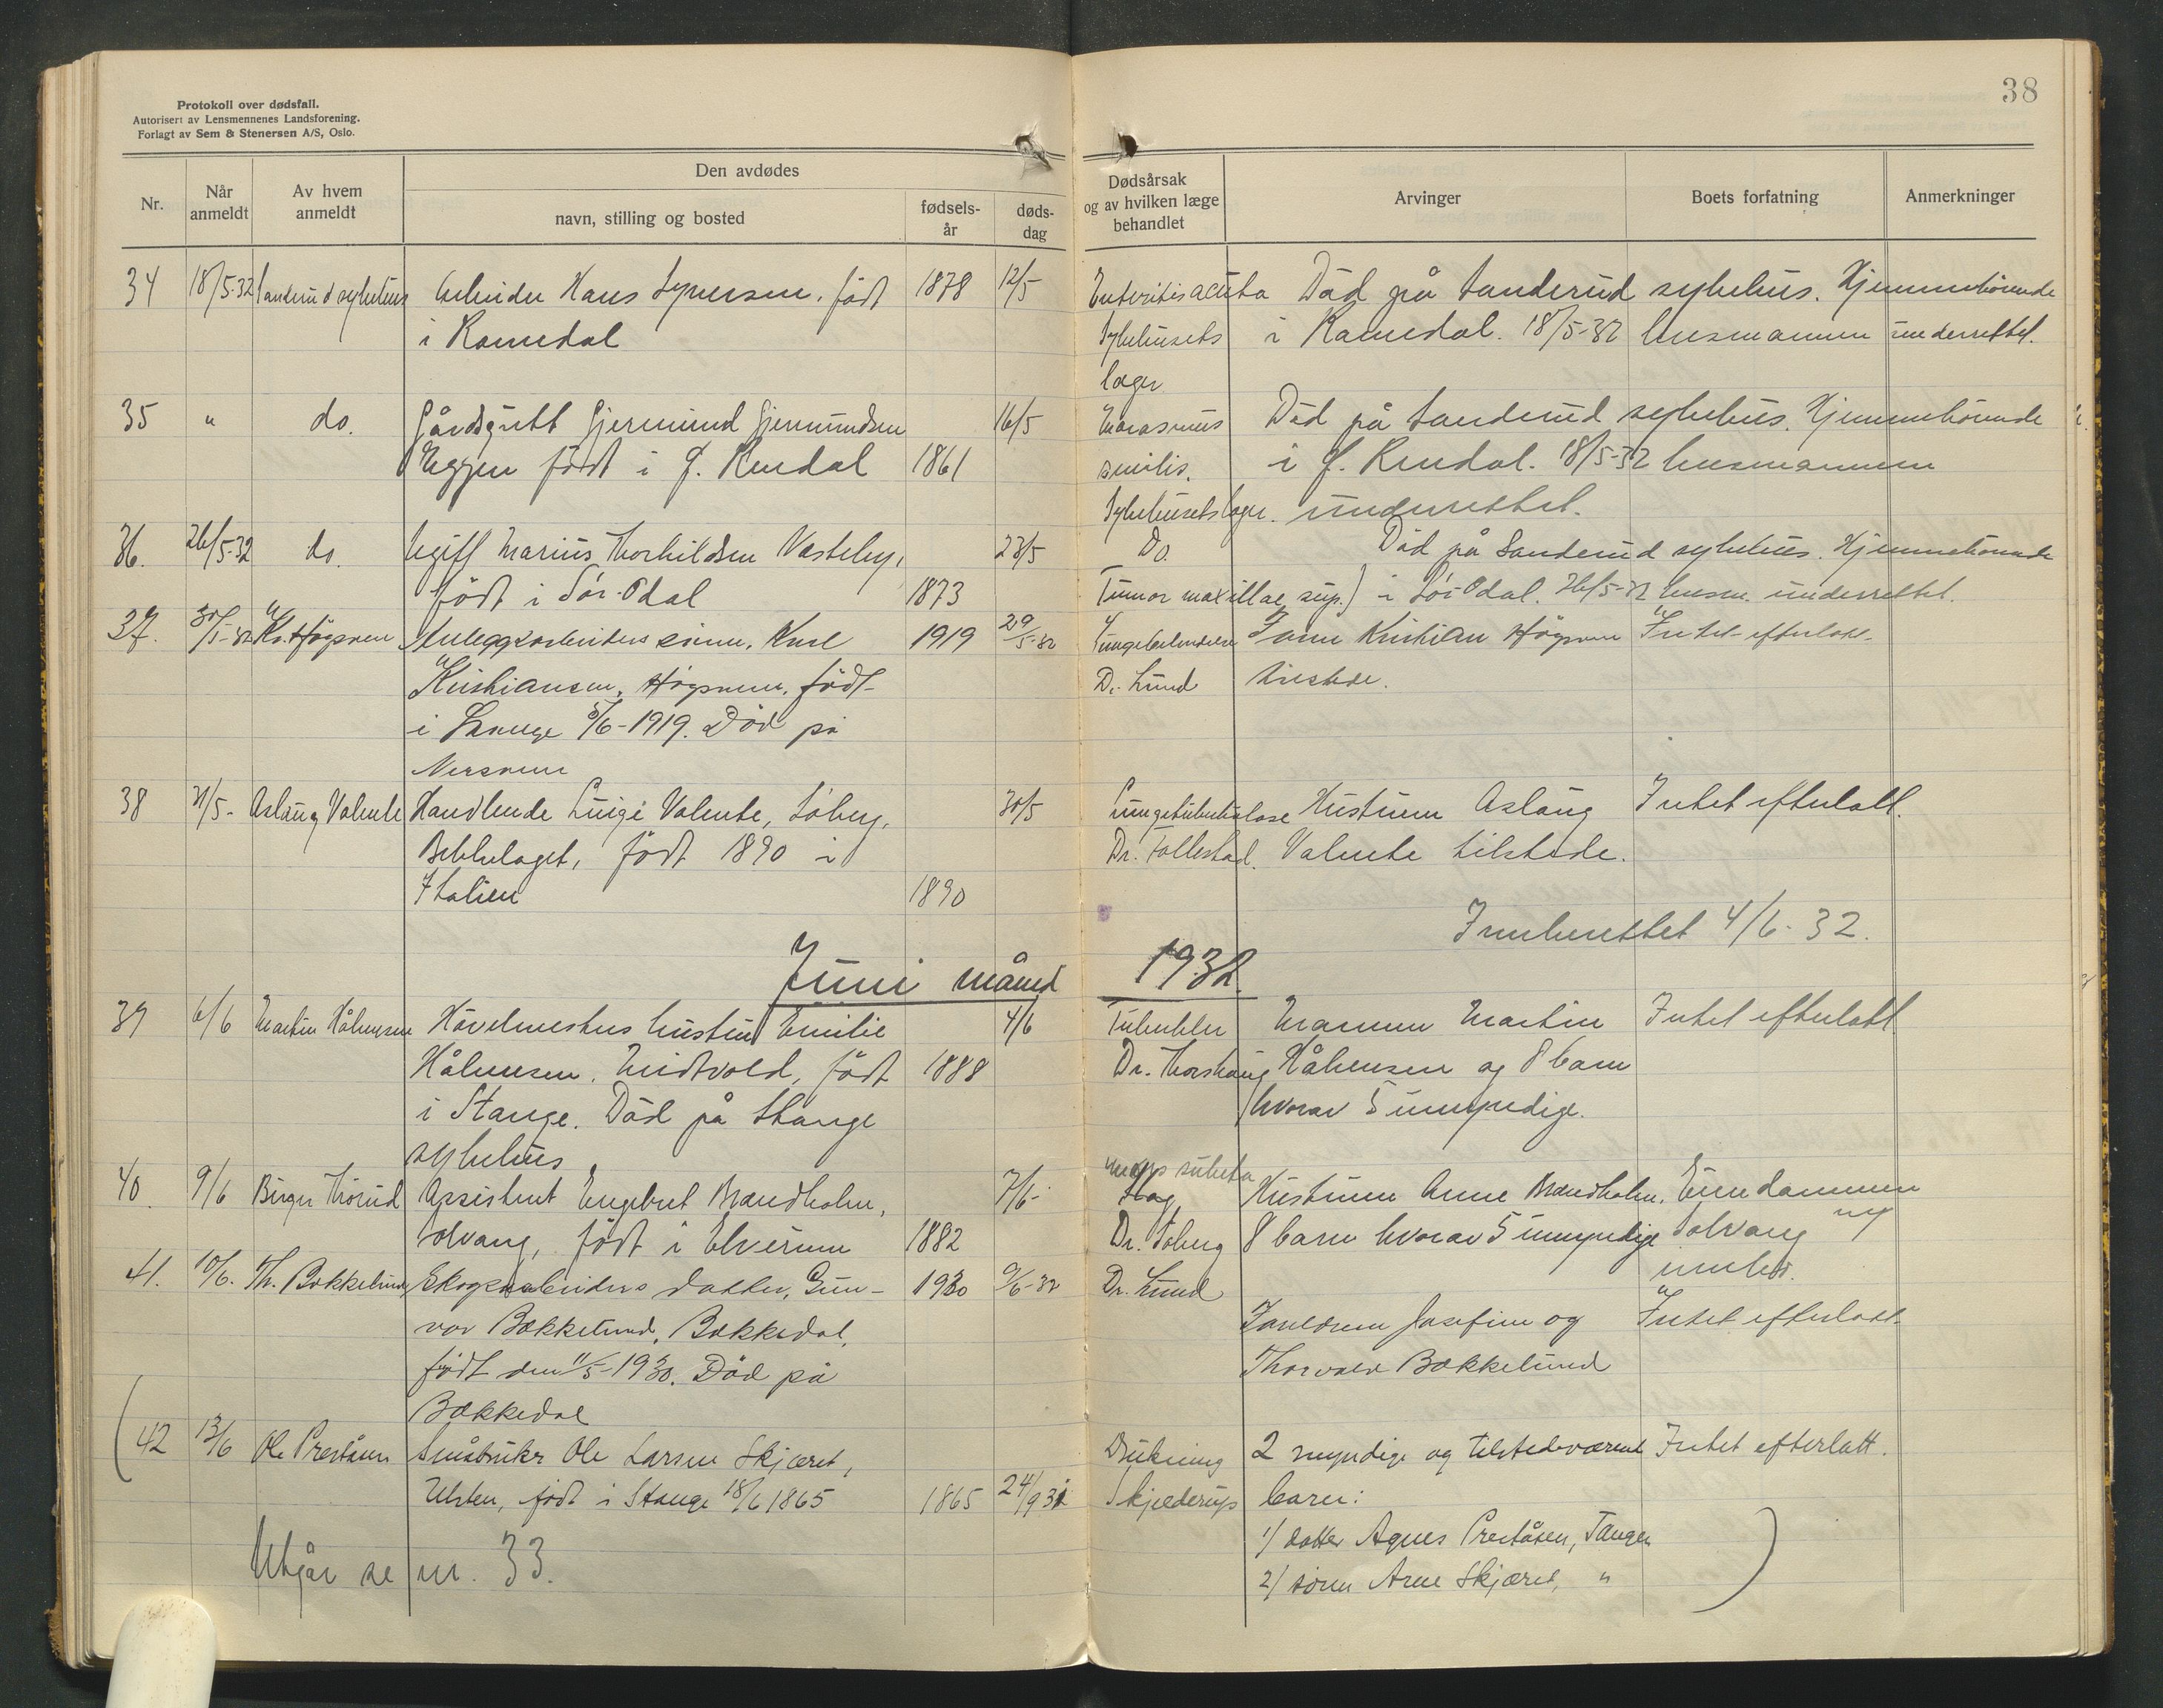 38
Protokoll over dødsfall.
Autorisert av Lensmennenes Landsforening.
Forlagt av Sem & Stenersen A/S, Oslo.
Nr.
Når anmeldt
Av hvem anmeldt
Den avdødes
navn, stilling og bosted
fødsels-år
døds-dag
Dødsårsak og av hvilken læge behandlet
Arvinger
Boets forfatning
Anmerkninger
34 18/5-32 Sanderud sykehus Arbeider Hans Syversen, født 1878 12/5 Enteritis acuta Død på Sanderud sykehus. Hjemmehørende
i Romedal Sykehusets i Romedal. 18/5-32 lensmannen underrettet.
læger
35 " do. Gårdsgutt Gjermund Gjermundsen 16/5 Marasmus Død på Sanderud sykehus. Hjemmehørende
Eggen født i Y. Rendal 1861 senilis. i Y. Rendal. 18/5-32 lensmannen
Sykehusets læger. underrettet.
36. 26/5-32 do. Ugift Marius Thorkildsen Vasteby, 23/5 Do. Død på Sanderud sykehus. Hjemmehørende
født i Sör-Odal 1873 Tumor maxillae sup.) i Sör-Odal. 26/5-32 lensm. underrettet.
37. 30/5-32 Kr. Högsveen Anleggsarbeiders sönn, Karl 1919 29/5-32 Faren Kristian Högsveen Intet efterlatt
Kristiansen, Högsveen, født Dr. Lund tilstede.
i Stange 5/6-1919. Död på
Nersveen
38 31/5- Aslaug Valente Handlende Luigi Valente, Söberg, 30/5 Lungetuberkulose Hustruen Aslaug Intet efterlatt.
Bekkelaget, født 1890 i Dr. Follestad. Valente tilstede.
Italien 1890
Innberettet 4/6-32.
Juni måned 1932.
39 6/6 Martin Håkensen Hövelmesters hustru Emilie 4/6 Tuberkler Mannen Martin Intet efterlatt
Håkensen, Midtvold, født 1888 Dr. Thorshaug Håkensen og 8 barn
i Stange. Död på Stange hvorav 5 umyndige.
sykehus
40. 9/6 Birger Thorud Assistent Engebret Brændholen, 7/6- mors subita
Slag Hustruen Anne Brændholen, Eiendommen
Solvang, født i Elverum 1882 Dr. Soberg 8 barn hvorav 5 umyndige Solvang
41. 10/6. Th. Bækkelund Skogsarbeiders datter, Gun- 1930 9/6-32 Dr. Lund
vor Bækkelund, Bækkedal, Foreldrene Josefine og Intet efterlatt
født den 11/5-1930. Död på Thorvald Bækkelund
Bækkedal
42 13/6 Ole Preståsen Småbruker Ole Larsen Skjæret, Drukning 2 myndige og tilstedeværende Intet efterlatt.
Ulsten, født i Stange 18/6 1865 1865 24/9 31 Skjelderup barn:
1/ datter Agnes Preståsen, Tangen
2/ sönn Arne Skjæret, "
Utgår se nr. 33.